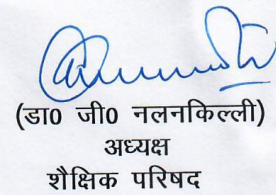 (डा0 जी0 नलनकिल्ली)
अध्यक्ष
शैक्षिक परिषद